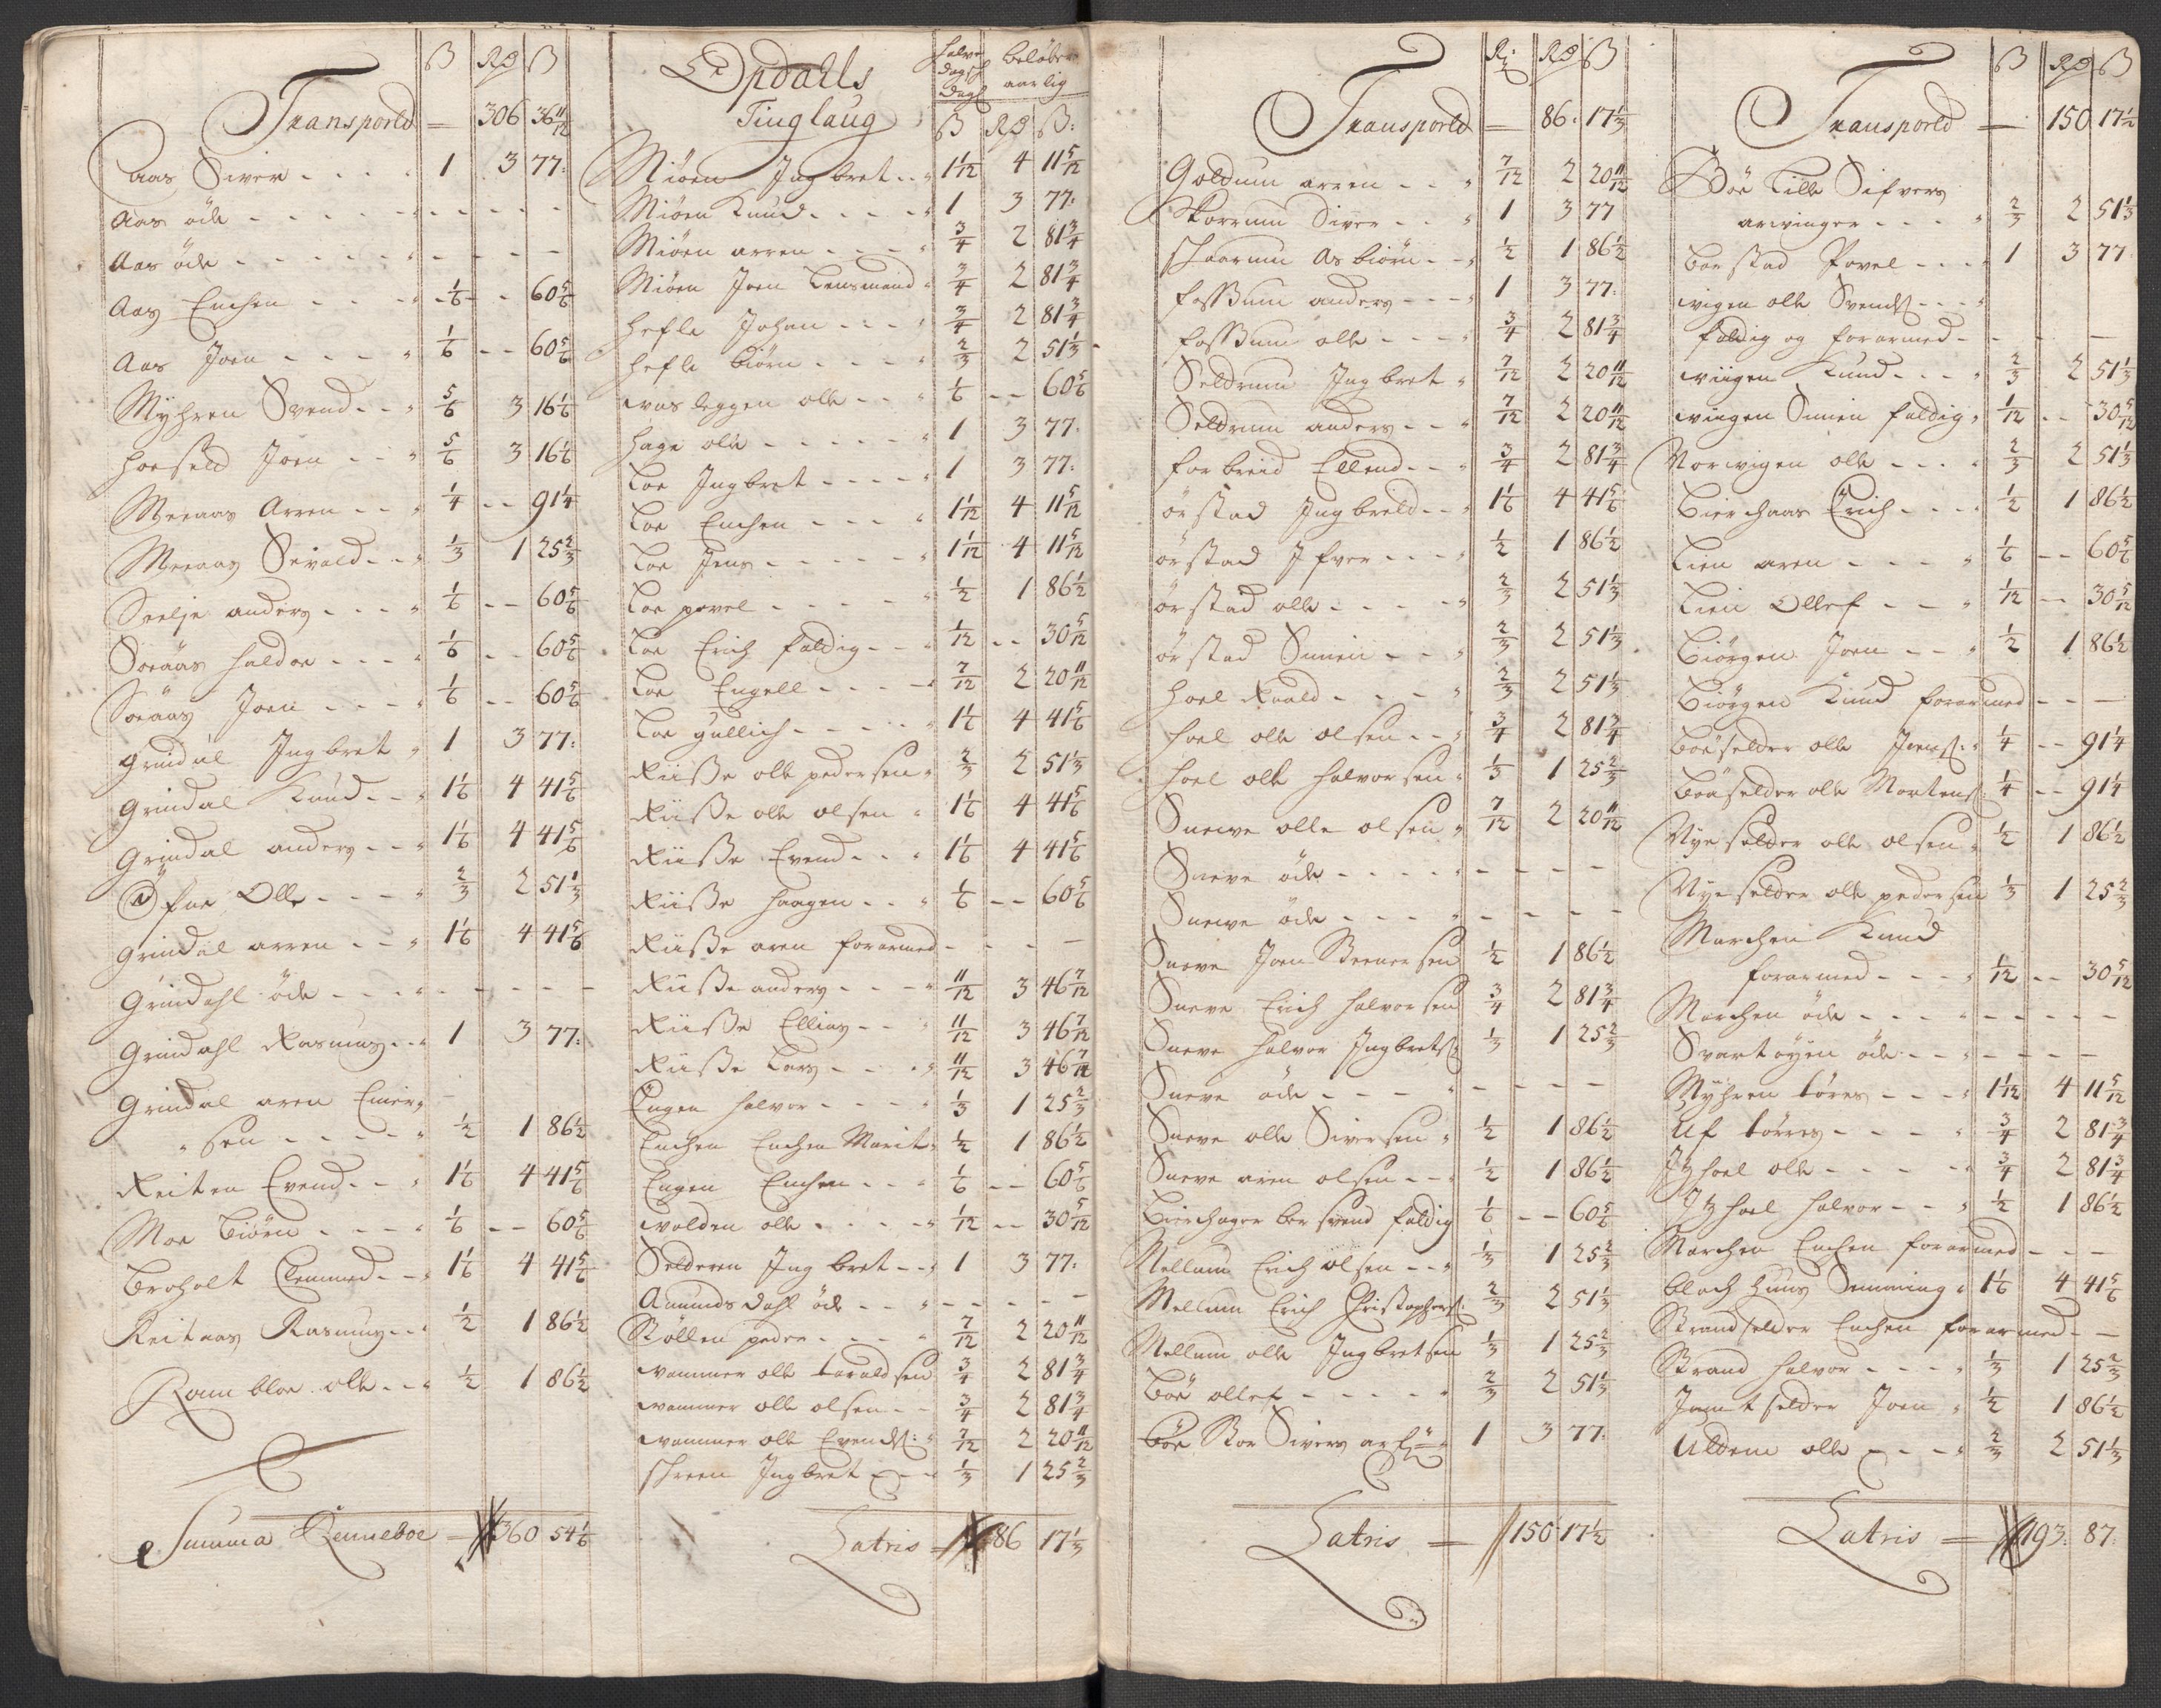 ß Rd ß
Transporld — 306 36 11/12
Aas Siver - - - - 1 3 77:
Aas öde - - - - -
Aas öde - - - - -
Aas Enchen - - - 1/6 - - 60 5/6
Aas Joen - - - - 1/6 - - 60 5/6
Myhren Svend - - 5/6 3 16 1/6
Hoeseld Joen - - 5/6 3 16 1/6
Meeaas Arren - - 1/4 - - 91 1/4
Meeaas Sivald - - 1/3 1 25 2/3
Seelje anders - - - 1/6 - - 60 5/6
Soeaas Haldoe - - - 1/6 - - 60 5/6
Soeaas Joen - - - 1/6 - - 60 5/6
Grindal Ingbret 1 3 77:
Grindal Knud - - 1 1/6 4 41 5/6
Grindal anders - - 1 1/6 4 41 5/6
fne Olle - - - 2/3 2 51 1/3
Grindal arren - - 1 1/6 4 41 5/6
Grindahl öde - - - - -
Grindahl Rasmus - - 1 3 77:
Grindal aren Einer-
sen - - - - 1/2 1 86 1/2
Reiten Evend - - 1 1/6 4 41 5/6
Moe Biörn - - - - 1/6 - - 60 5/6
Broholt Clemmed - - 1 1/6 4 41 5/6
Reitaas Rasmus - - 1/2 1 86 1/2
Rambloe olle - - 1/2 1 86 1/2
Summa Renneboe — 360 54 1/6
Opdalls
Tinglaug
halve dags beløber aarlig
ß Rd ß:
Miöen Ingbret - - 1 1/12 4 11 5/12
Miöen Knud - - - - 1 3 77:
Miöen arren - - - - 3/4 2 81 3/4
Miöen Joen Lensmand 3/4 2 81 3/4
Hefle Johan - - - 3/4 2 81 3/4
Hefle Biörn - - - - 2/3 2 51 1/3
wasleggen olle - - 1/6 - - 60 5/6
Hage olle - - - - - 1 3 77:
Loe Ingbret - - - - 1 3 77:
Loe Enchen - - - 1 1/12 4 11 5/12
Loe Jens - - - - - 1 1/12 4 11 5/12
Loe povel - - - - - 1/2 1 86 1/2
Loe Erich faldig - - 1/12 - - 30 5/12
Loe Engell - - - - 7/12 2 20 11/12
Loe gullich - - - - 1 1/6 4 41 5/6
Riiße olle pedersen 2/3 2 51 1/3
Riiße olle olsen 1 1/6 4 41 5/6
Riiße Evend - - - 1 1/6 4 41 5/6
Riiße Haagen - - 1/6 - - 60 5/6
Riiße aren forarmed - - - -
Riiße anders - - - 11/12 3 46 7/12
Riiße Ellias - - 11/12 3 46 7/12
Riiße Lars - - - 11/12 3 46 7/12
Engen halvor - - - - 1/3 1 25 2/3
Enchen Marit 1/2 1 86 1/2
Engen Enchen - - - 1/6 - - 60 5/6
wolden olle - - - - 1/12 - - 30 5/12
Selderen Ingbret - - 1 3 77:
Aamundsdahl öde - - - - - -
Stöllen peder - - - - 7/12 2 20 11/12
wammer olle taraldsen 3/4 2 81 3/4
wammer olle olsen - - 3/4 2 81 3/4
wammer olle Evends: 7/12 2 20 11/12
Skreen Ingbret - - 1/3 1 25 2/3
Latris — 86 17 1/3
Rd ß
Transporld — 86: 17 1/3
Goldum arren - - 7/12 2 20 11/12
Skorrum Siver - - 1 3 77
Skaarum Asbiörn - - 1/2 1 86 1/2
foßum anders - - - 1 3 77:
foßum olle - - - 3/4 2 81 3/4
Seldrum Ingbret 7/12 2 20 11/12
Seldrum anders - - 7/12 2 20 11/12
forbreid Ellend - - 3/4 2 81 3/4
örstad Ingbreld - - 1 1/6 4 41 5/6
örstad Ifver - - - 1/2 1 86 1/2
örstad olle - - - - 2/3 2 51 1/3
örstad Simen - - 2/3 2 51 1/3
hoel Roald - - - 2/3 2 51 1/3
hoel olle olsen - - 3/4 2 81 3/4
hoel olle halvorsen 1/3 1 25 2/3
Sneve olle olsen 7/12 2 20 11/12
Sneve öde - - - - - - -
Sneve öde - - - - - - -
Sneve Joen Steensen 1/2 1 86 1/2
Sneve Erich halvorsen 3/4 2 81 3/4
Sneve halvor Ingbrets: 1/3 1 25 2/3
Sneve öde - - - - - -
Sneve olle Siversen 1/2 1 86 1/2
Sneve aren olsen - - 1/2 1 86 1/2
Bierchager ber svend faldig 1/6 - - 60 5/6
Mellum Erich olsen - - 1/3 1 25 2/3
Mellum Erich Christophers: 2/3 2 51 1/3
Mellum olle Ingbretsen 1/3 1 25 2/3
Böe ollef - - - - - 2/3 2 51 1/3
Böe Stor Sivers arf: 1 3 77:
Latris — 150 17 1/2
ß Rd ß
Transporld — 150 17 1/2
Böe Lille Sifvers
arvinger - - - 2/3 2 51 1/3
Boestad Povel - - - 1 3 77
wigen olle Svends - - -
faldig og forarmed - - - -
wiigen Knud - - - 2/3 2 51 1/3
wiigen Simen faldig 1/12 - - 30 5/12
Norwigen olle - - - 2/3 2 51 1/3
Bierchaas Erich - - - 1/2 1 86 1/2
Lien aren - - - 1/6 - - 60 5/6
Lien Ollef - - 1/12 - - 30 5/12
Biörgen Joen - - 1/2 1 86 1/2
Biörgen Knud forarmed - - -
Boeselder olle Jens: 1/4 - - 91 1/4
Boeselder olle Mortens: 1/4 - - 91 1/4
Nyeselder olle olsen 1/2 1 86 1/2
Nyeselder olle pedersen 1/3 1 25 2/3
Marchen Knud
forarmed - - - 1/12 - - 30 5/12
Marchen öde - - - - - - -
Svartöyen öde - - - - - -
Myhren töres - - - 1 1/12 4 11 5/12
Uf törres - - - - 3/4 2 81 3/4
hoel olle - - - - 3/4 2 81 3/4
hoel halvor - - 1/2 1 86 1/2
Marchen Enchen forarmed - - -
bloch Huus Semming 1 1/6 4 41 5/6
Strandselder Enchen forarmed - -
Strand halvor - - - 1/3 1 25 2/3
Jamtselder Joen 1/2 1 86 1/2
Uldem olle - - - 2/3 2 51 1/3
Latris — 193: 87: